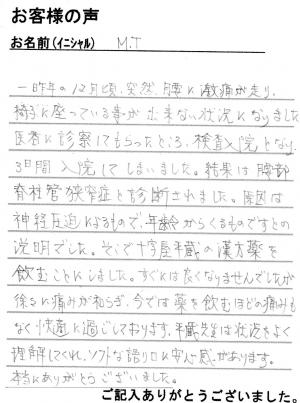 お客様の声
お名前(イニシャル) M.T
一昨年の12月頃、突然、腰に激痛が走り、
椅子に座っている事が出来ない状況になりました
医者に診察してもらったところ、検査入院となり、
3日間入院してしまいました。結果は腰部
脊柱管狭窄症と診断されました。原因は
神経圧迫によるもので、年齢からくるものですとの
説明でした。そこで十字屋平蔵の漢方薬を
飲むことにしました。すぐには良くなりませんでしたが
徐々に痛みが和らぎ、今では薬を飲むほどの痛みも
なく快適に過ごしております。平蔵先生は状況をよく
理解してくれ、ソフトな語り口に安心感があります。
本当にありがとうございました。
ご記入ありがとうございました。